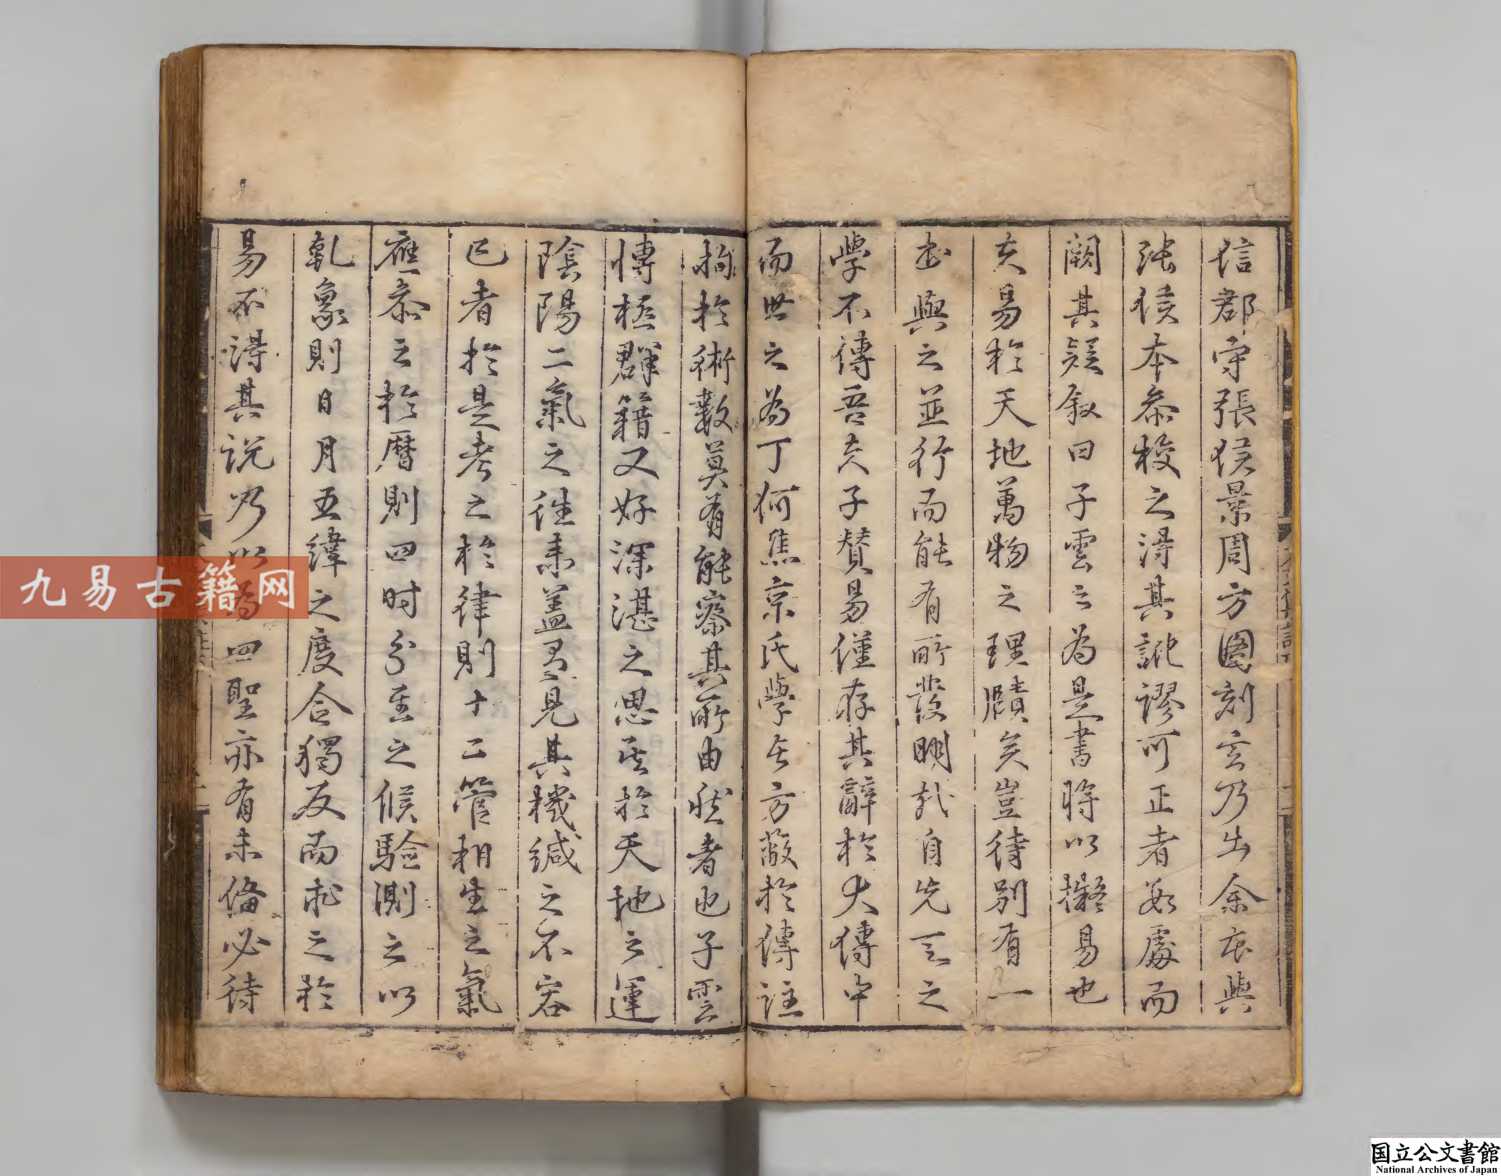 信郡守張侯景周方圖刻玄乃出余本與
張侯本參校之得其訛謬可正者數處而
闕其疑叙曰子雲之為是書將以擬易也
夫易於天地萬物之理賾矣豈待別有一
書與之並行而能有所發明哉自先天之
學不傳吾夫子贊易僅存其辭於大傳中
而世之為丁何焦京氏學者方蔽於傳註
拘於術數莫有能察其所由然者也子雲
博極群籍又好深湛之思其於天地之運
陰陽二氣之往來蓋若見其機緘之不容
已者於是考之於律則十二管相生之氣
應參之於曆則四时分至之候驗測之以
乹象則日月五緯之度合獨反而求之於
易不得其說乃以為四聖亦有未備必待
九易古籍网
国立公文書館
National Archives of Japan